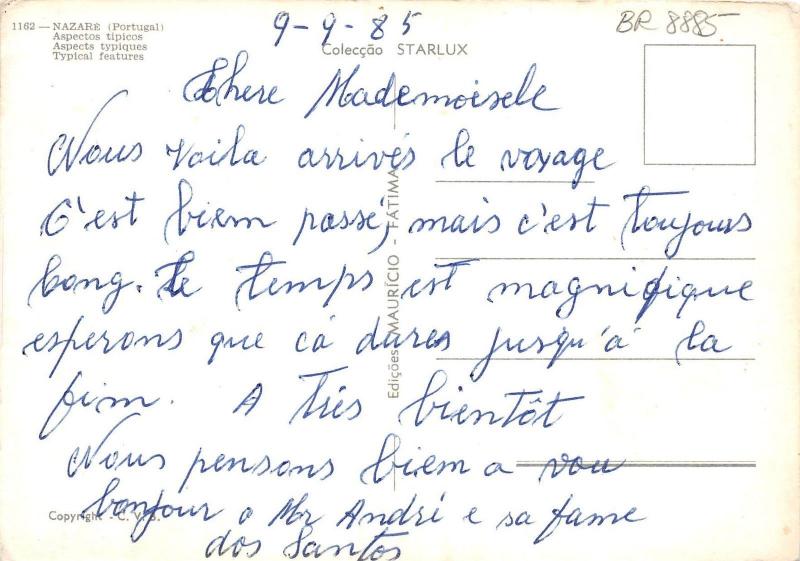 1162 — NAZARÉ (Portugal)
Aspectos típicos
Aspects typiques
Typical features
9-9-85
BR 8885
Colecção STARLUX
Chere Mademoisele
Nous voila arrivés le voyage
C'est biem passé, mais c'est toujours
long. Le temps est magnifique
esperons que cá dures jusqu'á la
fim. A três bientôt
Nous pensons biem a vou
bonjour o Mr André e sa fame
dos Santos
Edições MAURÍCIO - FÁTIMA
Copyright - C. V. S.